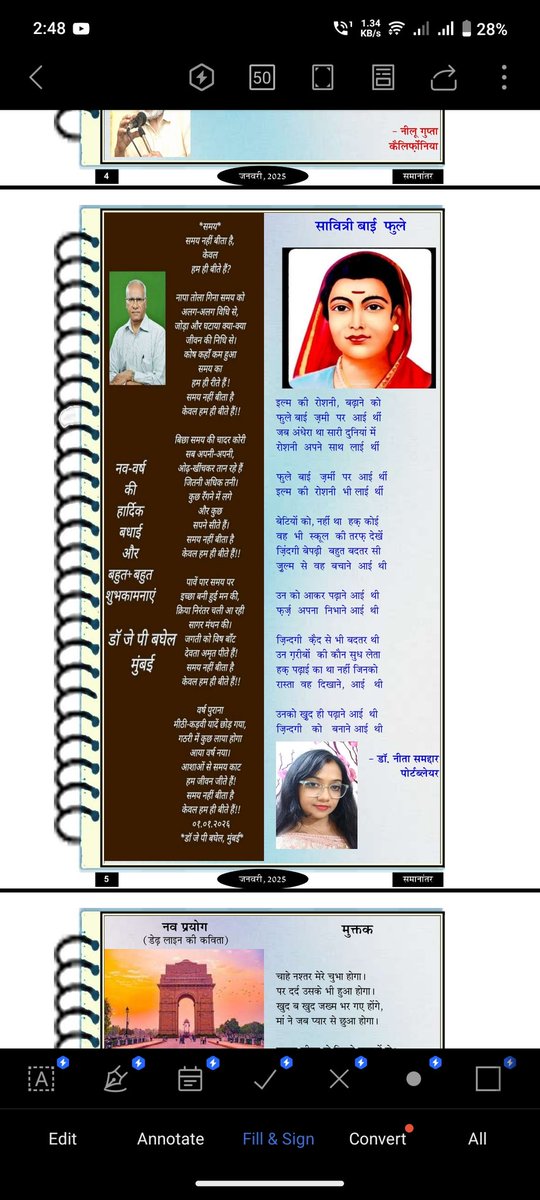 2:48
1.34
KB/s
28%
50
- नीलू गुप्ता
कैलिफ़ोंनिया
4
जनवरी, 2025
समानांतर
*समय*
समय नहीं बीता है,
केवल
हम ही बीते हैं?
नापा तोला गिना समय को
अलग-अलग विधि से,
जोड़ा और घटाया क्या-क्या
जीवन की निधि से।
कोष कहाँ कम हुआ
समय का
हम ही रीते हैं!
समय नहीं बीता है
केवल हम ही बीते हैं!!
बिछा समय की चादर कोरी
सब अपनी-अपनी,
ओढ़-खींचकर तान रहे हैं
जितनी अधिक तनी।
कुछ रैंगने में लगे
और कुछ
सपने सीते हैं।
समय नहीं बीता है
केवल हम ही बीते हैं!!
पावें पार समय पर
इच्छा बनी हुई मन की,
क्रिया निरंतर चली आ रही
सागर मंथन की।
जगती को विष बाँट
देवता अमृत पीते हैं!
समय नहीं बीता है
केवल हम ही बीते हैं!!
वर्ष पुराना
मीठी-कड़वी यादें छोड़ गया,
गठरी में कुछ लाया होगा
आया वर्ष नया।
आशाओं से समय काट
हम जीवन जीते हैं!
समय नहीं बीता है
केवल हम ही बीते हैं!!
०१.०१.२०२६
*डॉ जे पी बघेल, मुंबई*
नव-वर्ष
की
हार्दिक
बधाई
और
बहुत+बहुत
शुभकामनाएं
डॉ जे पी बघेल
मुंबई
सावित्री बाई फुले
इल्म की रोशनी, बढ़ाने को
फुले बाई ज़मी पर आई थीं
जब अंधेरा था सारी दुनियां में
रोशनी अपने साथ लाई थीं
फुले बाई ज़मीं पर आई थीं
इल्म की रोशनी भी लाई थीं
बेटियों को, नहीं था हक़ कोई
वह भी स्कूल की तरफ़ देखें
ज़िंदगी बेपढ़ी बहुत बदतर सी
जुल्म से वह बचाने आई थी
उन को आकर पढ़ाने आई थी
फर्ज़ अपना निभाने आई थी
ज़िन्दगी क़ैद से भी बदतर थी
उन ग़रीबों की कौन सुध लेता
हक़ पढ़ाई का था नहीं जिनको
रास्ता वह दिखाने, आई थी
उनको खुद ही पढ़ाने आई थी
ज़िन्दगी को बनाने आई थी
- डॉ. नीता समद्दार
पोर्टब्लेयर
5
जनवरी, 2025
समानांतर
नव प्रयोग
(डेढ़ लाइन की कविता)
मुक्तक
चाहे नश्तर मेरे चुभा होगा।
पर दर्द उसके भी हुआ होगा।
खुद ब खुद जख्म भर गए होंगे,
मां ने जब प्यार से छुआ होगा।
A
Edit
Annotate
Fill & Sign
Convert
All